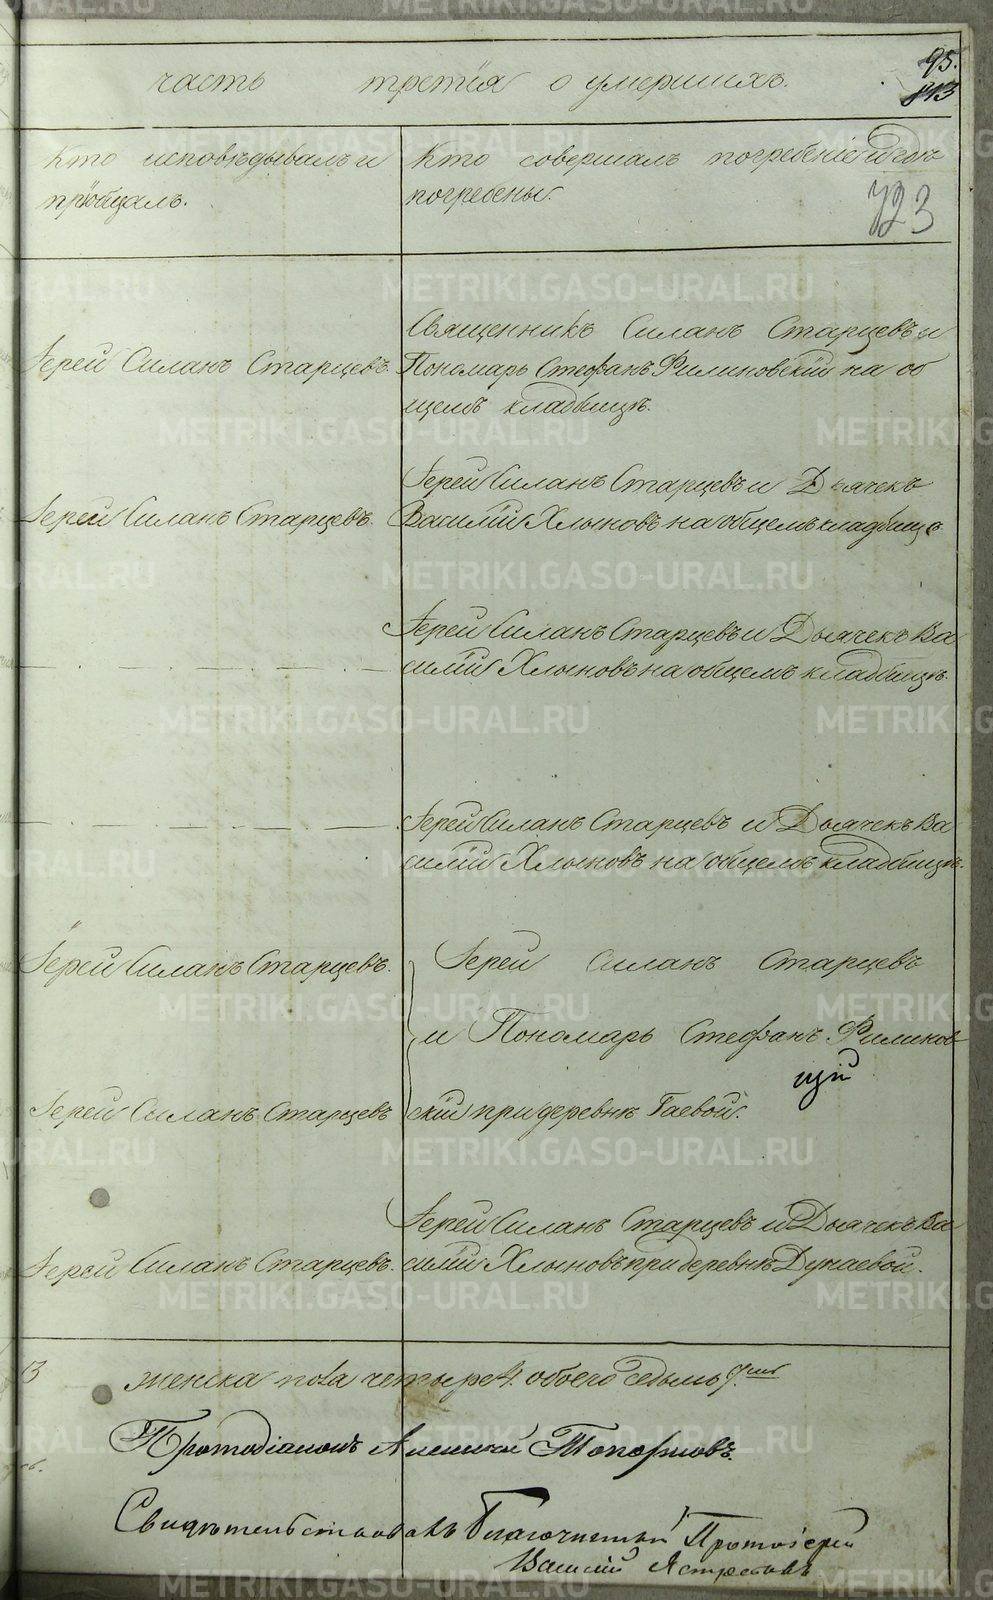 95.
813
часть третія о умершихъ.
Кто исповѣдывалъ и
пріобщалъ.
Кто совершалъ погребеніе и гдѣ
погребены.
723
Іерей Силанъ Старцевъ.
Священникъ Силанъ Старцевъ и
Пономарь Стефанъ Филиновскій на об
щемъ кладбищѣ.
Іерей Силанъ Старцевъ.
Іерей Силанъ Старцевъ и Дьячекъ
Василій Хлыновъ на общемъ кладбищѣ
Іерей Силанъ Старцевъ и Дьячекъ Ва
силій Хлыновъ на общемъ кладбищѣ.
Іерей Силанъ Старцевъ и Дьячекъ Ва
силій Хлыновъ на общемъ кладбищѣ.
Іерей Силанъ Старцевъ.
Іерей Силанъ Старцевъ
и Пономарь Стефанъ Филинов
Іерей Силанъ Старцевъ
скій при деревнѣ Гаевой.
Іерей Силанъ Старцевъ.
Іерей Силанъ Старцевъ и Дьячекъ Ва
силій Хлыновъ при деревнѣ Дунаевой.
3
женска пола четыре 4. обоего седмь 7.
Протодіаконъ Алексій Топорковъ.
Свидѣтельствовалъ Благочинный Протоіерей
Василій
METRIKI.GASO-URAL.RU